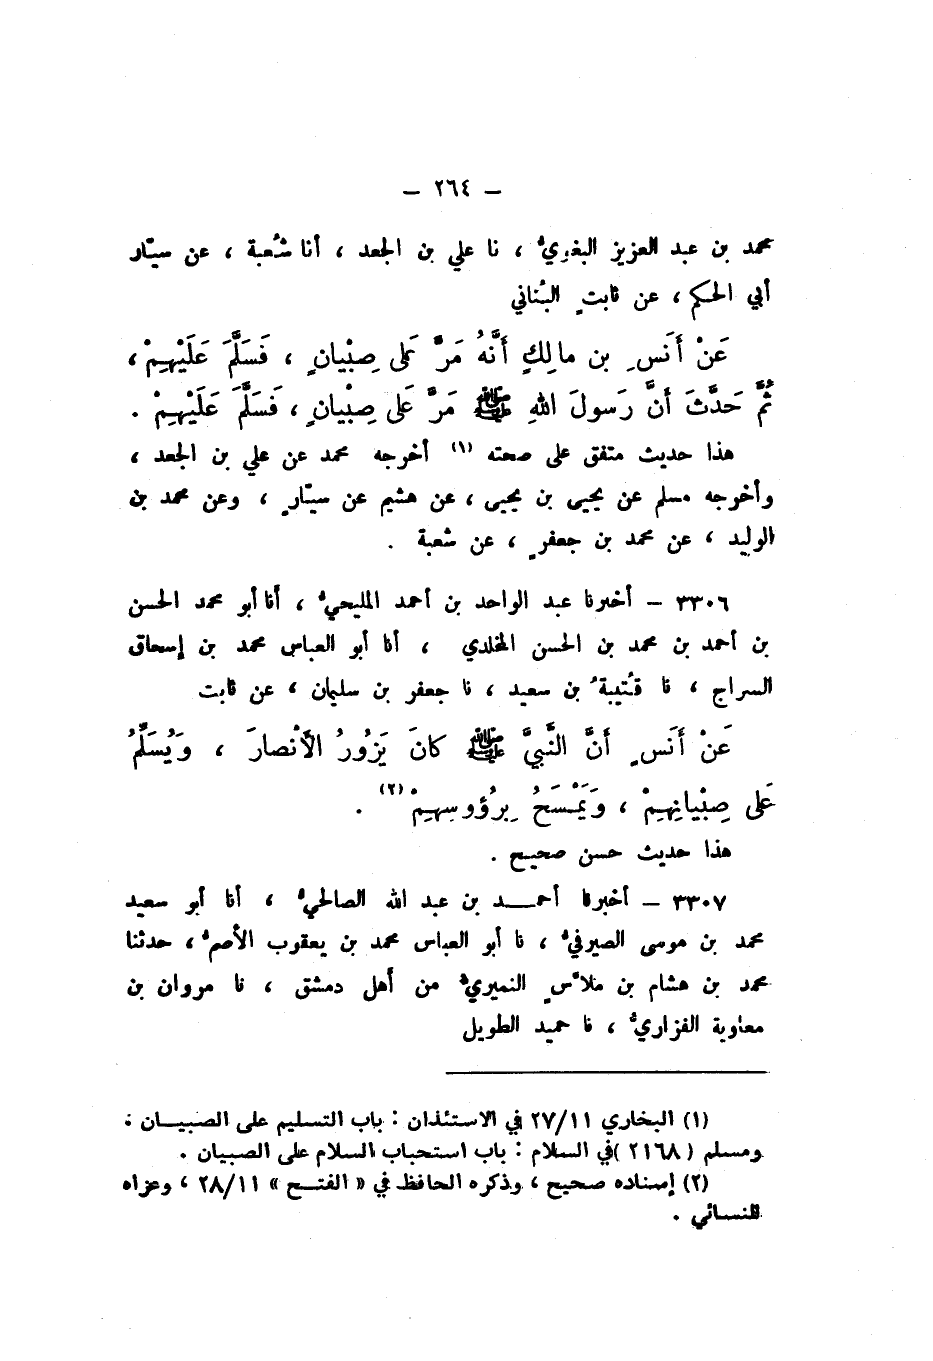 – ٢٦٤ –
محمد بن عبد العزيز البغويُّ ، نا علي بن الجعد ، أنا شُعبة ، عن سيّار
أبي الحكم ، عن ثابتٍ البُناني
عَنْ أَنَسِ بن مالِكٍ أَنَّهُ مَرَّ عَلى صِبْيانٍ ، فَسَلَّمَ عَلَيْهِمْ ،
ثُمَّ حَدَّثَ أَنَّ رَسولَ اللهِ ﷺ مَرَّ عَلى صِبْيانٍ ، فَسَلَّمَ عَلَيْهِمْ .
هذا حديث متفق على صحته (١) أخرجه محمد عن علي بن الجعد ،
وأخرجه مسلم عن يحيى بن يحيى ، عن هشيم عن سيّارٍ ، وعن محمد بن
الوليد ، عن محمد بن جعفرٍ ، عن شعبة .
٣٣٠٦ – أخبرنا عبد الواحد بن أحمد المليحيُّ ، أنا أبو محمد الحسن
بن أحمد بن محمد بن الحسن المخلدي ، أنا أبو العباس محمد بن إسحاق
السراج ، نا قُتيبةُ بن سعيد ، نا جعفر بن سليمان ، عن ثابت
عَنْ أَنَسٍ أَنَّ النَّبِيَّ ﷺ كانَ يَزُورُ الأَنْصارَ ، وَيُسَلِّمُ
عَلى صِبْيانِهِمْ ، وَيَمْسَحُ بِرُؤوسِهِمْ (٢) .
هذا حديث حسن صحيح .
٣٣٠٧ – أخبرنا أحمـــد بن عبد الله الصالحيُّ ، أنا أبو سعيد
محمد بن موسى الصيرفيُّ ، نا أبو العباس محمد بن يعقوب الأصمُّ ، حدثنا
محمد بن هشام بن ملاّسٍ النميريُّ من أهل دمشق ، نا مروان بن
معاوية الفزاريُّ ، نا حميد الطويل
(١) البخاري ٢٧/١١ في الاستئذان : باب التسليم على الصبيــان ؛
ومسلم ( ٢١٦٨ )في السلام : باب استحباب السلام على الصبيان .
(٢) إسناده صحيح ، وذكره الحافظ في « الفتــح » ٢٨/١١ ، وعزاه
للنســائي .